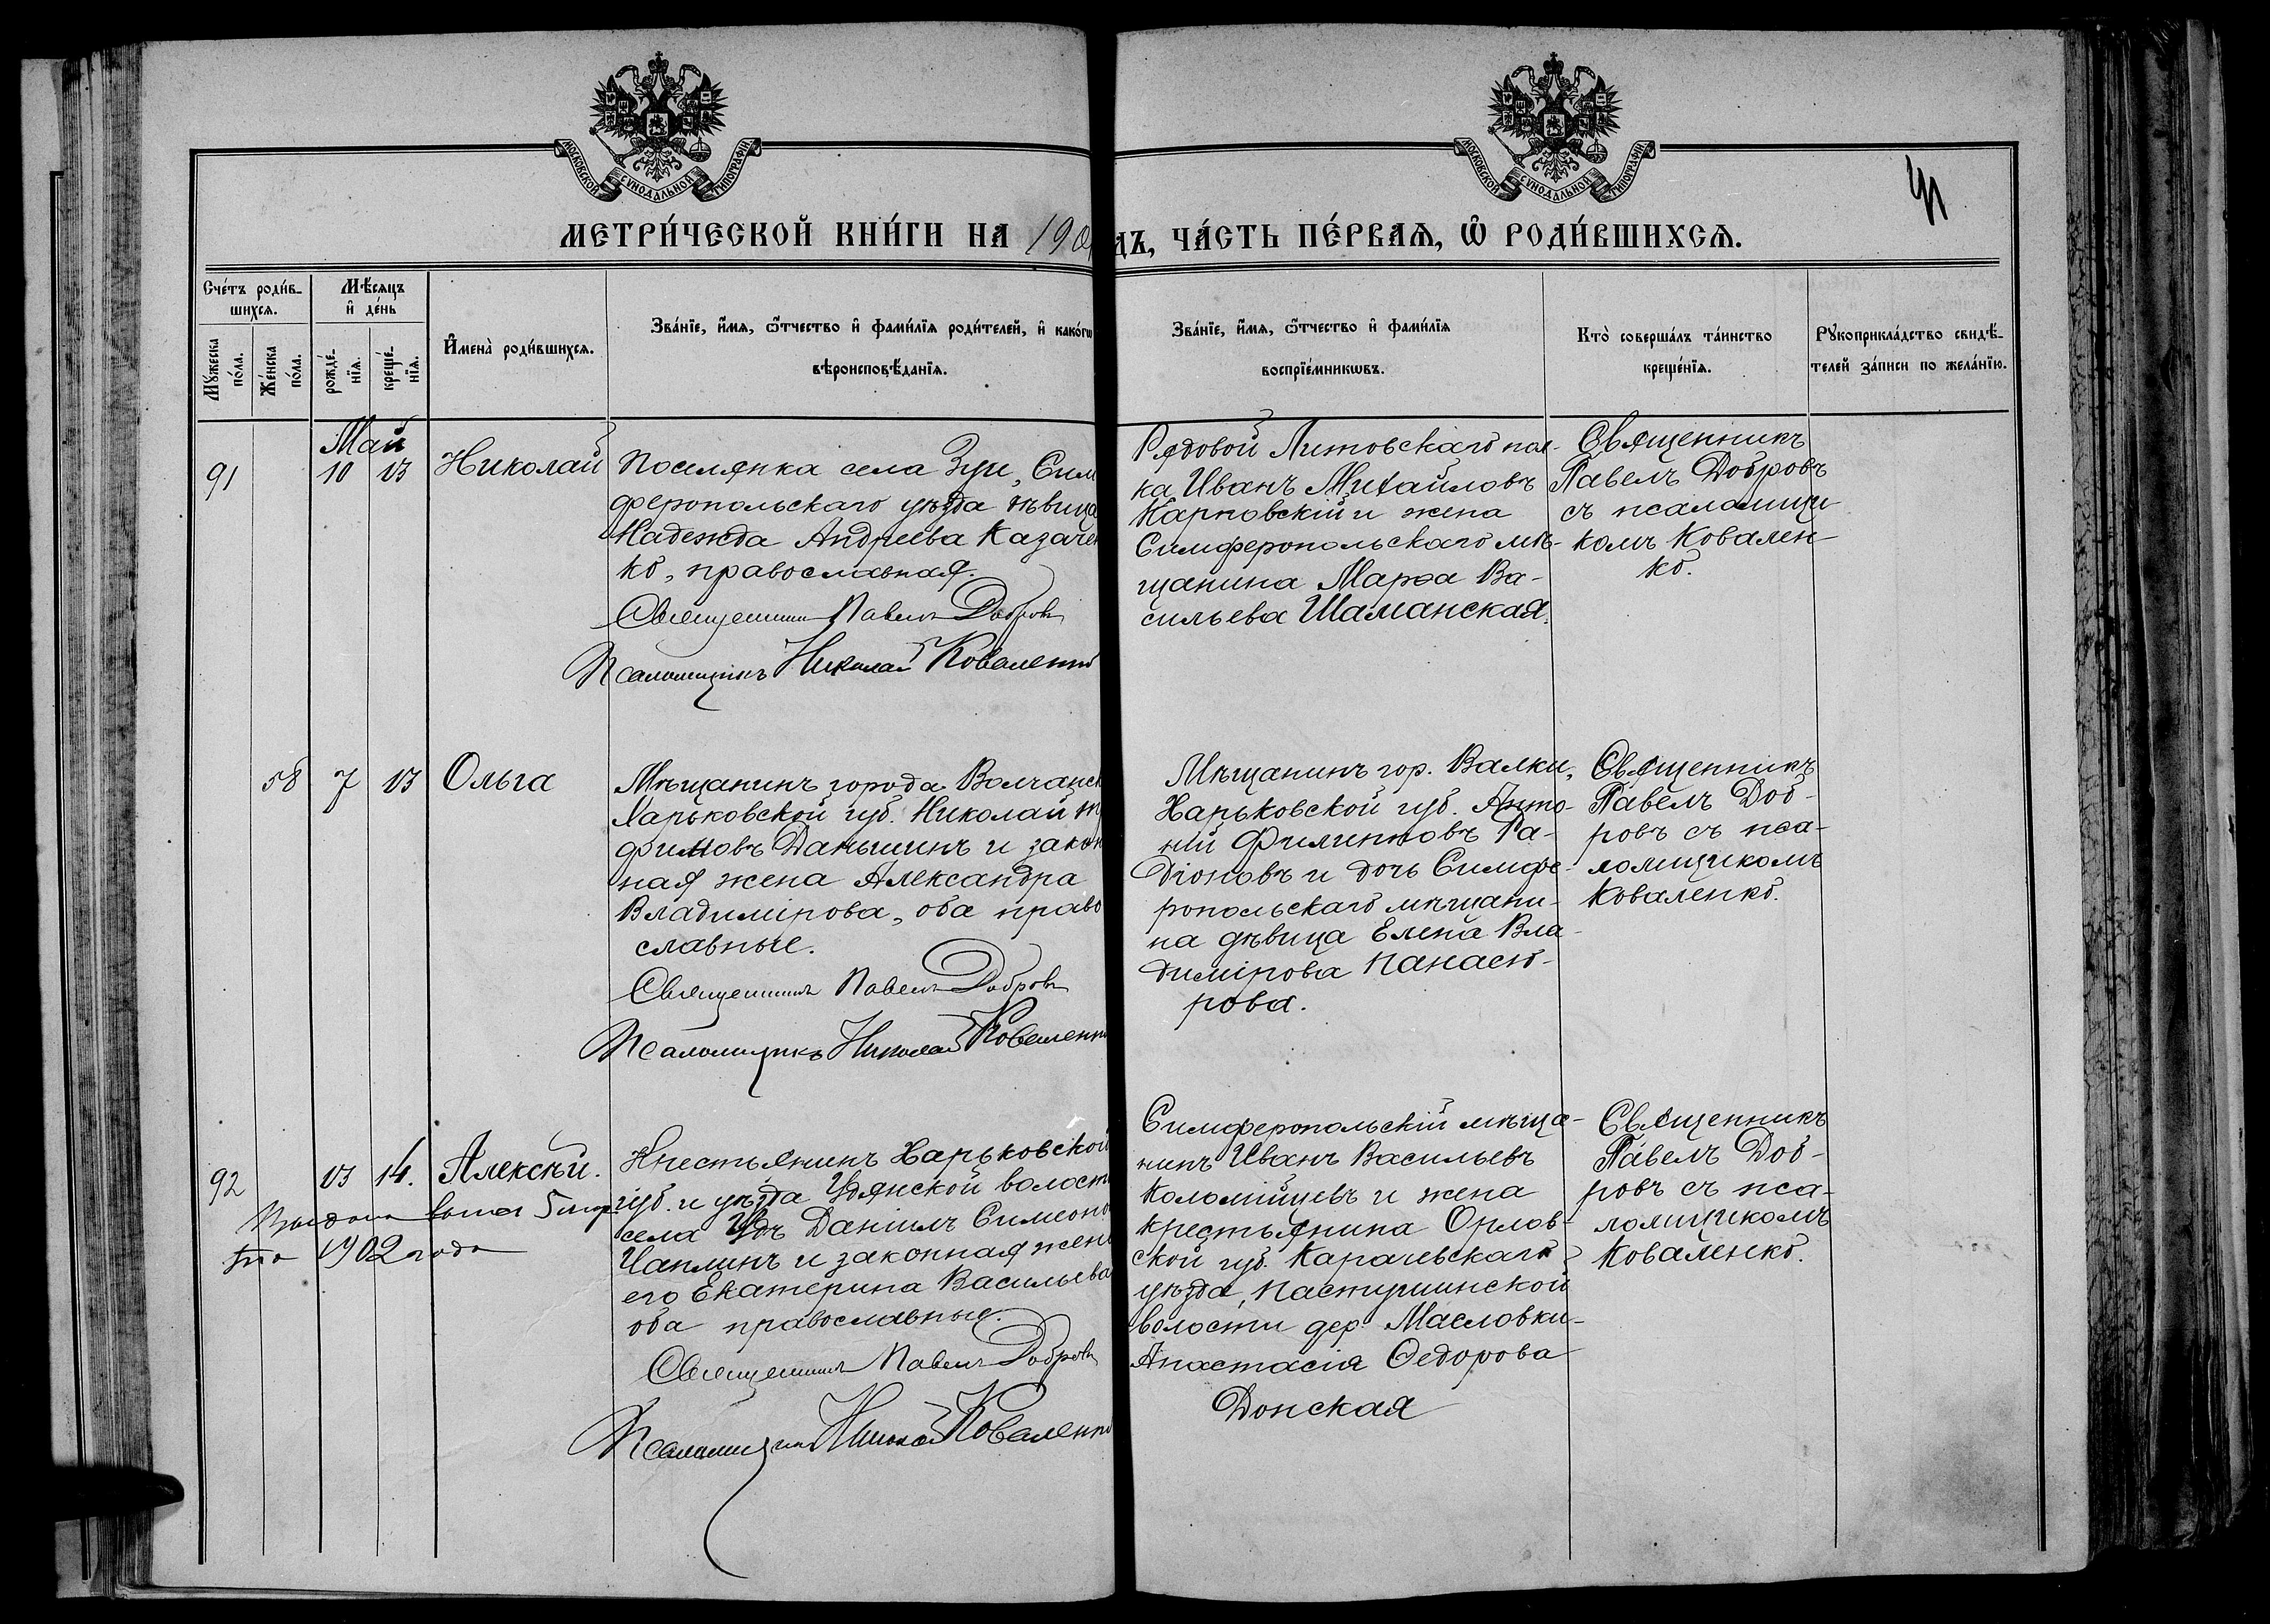 МОСКОВСКОЙ СѴНОДАЛЬНОЙ ТИПОГРАФІИ
МОСКОВСКОЙ СѴНОДАЛЬНОЙ ТИПОГРАФІИ
МЕТРИ́ЧЕСКОЙ КНИ́ГИ НА 190
ДЪ, ЧА́СТЬ ПЕ́РВАѦ, Ѽ РОДИ́ВШИХСѦ.
Сче́тъ роди́в-
шихсѧ.
Мꙋ́жеска
по́ла.
Же́нска
по́ла.
Мѣ́сѧцъ
и҆ де́нь
рожде́-
нїѧ.
креще́-
нїѧ.
И҆мена̀ роди́вшихсѧ.
Зва́нїе, и҆́мѧ, ѻ҆́тчество и҆ фами́лїѧ роди́телей, и҆ како́гѡ
вѣроисповѣ́данїѧ.
Зва́нїе, и҆́мѧ, ѻ҆́тчество и҆ фами́лїѧ
воспрїе́мникѡвъ.
Кто̀ соверша́лъ та́инство
креще́нїѧ.
Рꙋкоприкла́дство свидѣ́-
телей за́писи по жела́нїю.
Май
91 10 13 Николай
Поселянка села Зуи, Сим
феропольскаго уѣзда дѣвица
Надежда Андреева Казачен
ко, православная.
Священникъ Павелъ Добровъ
Псаломщикъ Николай Коваленко
Рядовой Литовскаго пол-
ка Иванъ Михайловъ
Карповскій и жена
Симферопольскаго мѣ-
щанина Марѳа Ва-
сильева Шаманская.
Священникъ
Павелъ Добровъ
съ псаломщи
комъ Ковален-
ко.
58 7 13 Ольга
Мѣщанинъ города Волчанск
Харьковской губ. Николай
фимовъ Даньшинъ и закон
ная жена Александра
Владимірова, оба право
славные.
Священникъ Павелъ Добровъ
Псаломщикъ Николай Коваленко
Мѣщанинъ гор. Валки,
Харьковской губ. Анто-
ній Филипповъ Ра-
діоновъ и дочь Симфе-
ропольскаго мѣщани-
на дѣвица Елена Вла-
димірова Панасю-
рова.
Священникъ
Павелъ Доб-
ровъ съ пса-
ломщикомъ
Коваленко.
92 13 14. Алексѣй.
1902 года
Крестьянинъ Харьковской
губ. и уѣзда Удянской волост
села Удъ Даніилъ Симеоно
Чаплинъ и законная жена
его Екатерина Васильева
оба православные.
Священникъ Павелъ Добровъ
Псаломщикъ Николай Коваленко
Симферопольскій мѣща-
нинъ Иванъ Васильевъ
Коломійцевъ и жена
крестьянина Орлов-
ской губ. Карачевскаго
уѣзда, Пастушинской
волости дер. Масловки-
Анастасія Ѳедорова
Донская
Священникъ
Павелъ Доб-
ровъ съ пса-
ломщикомъ
Коваленко.